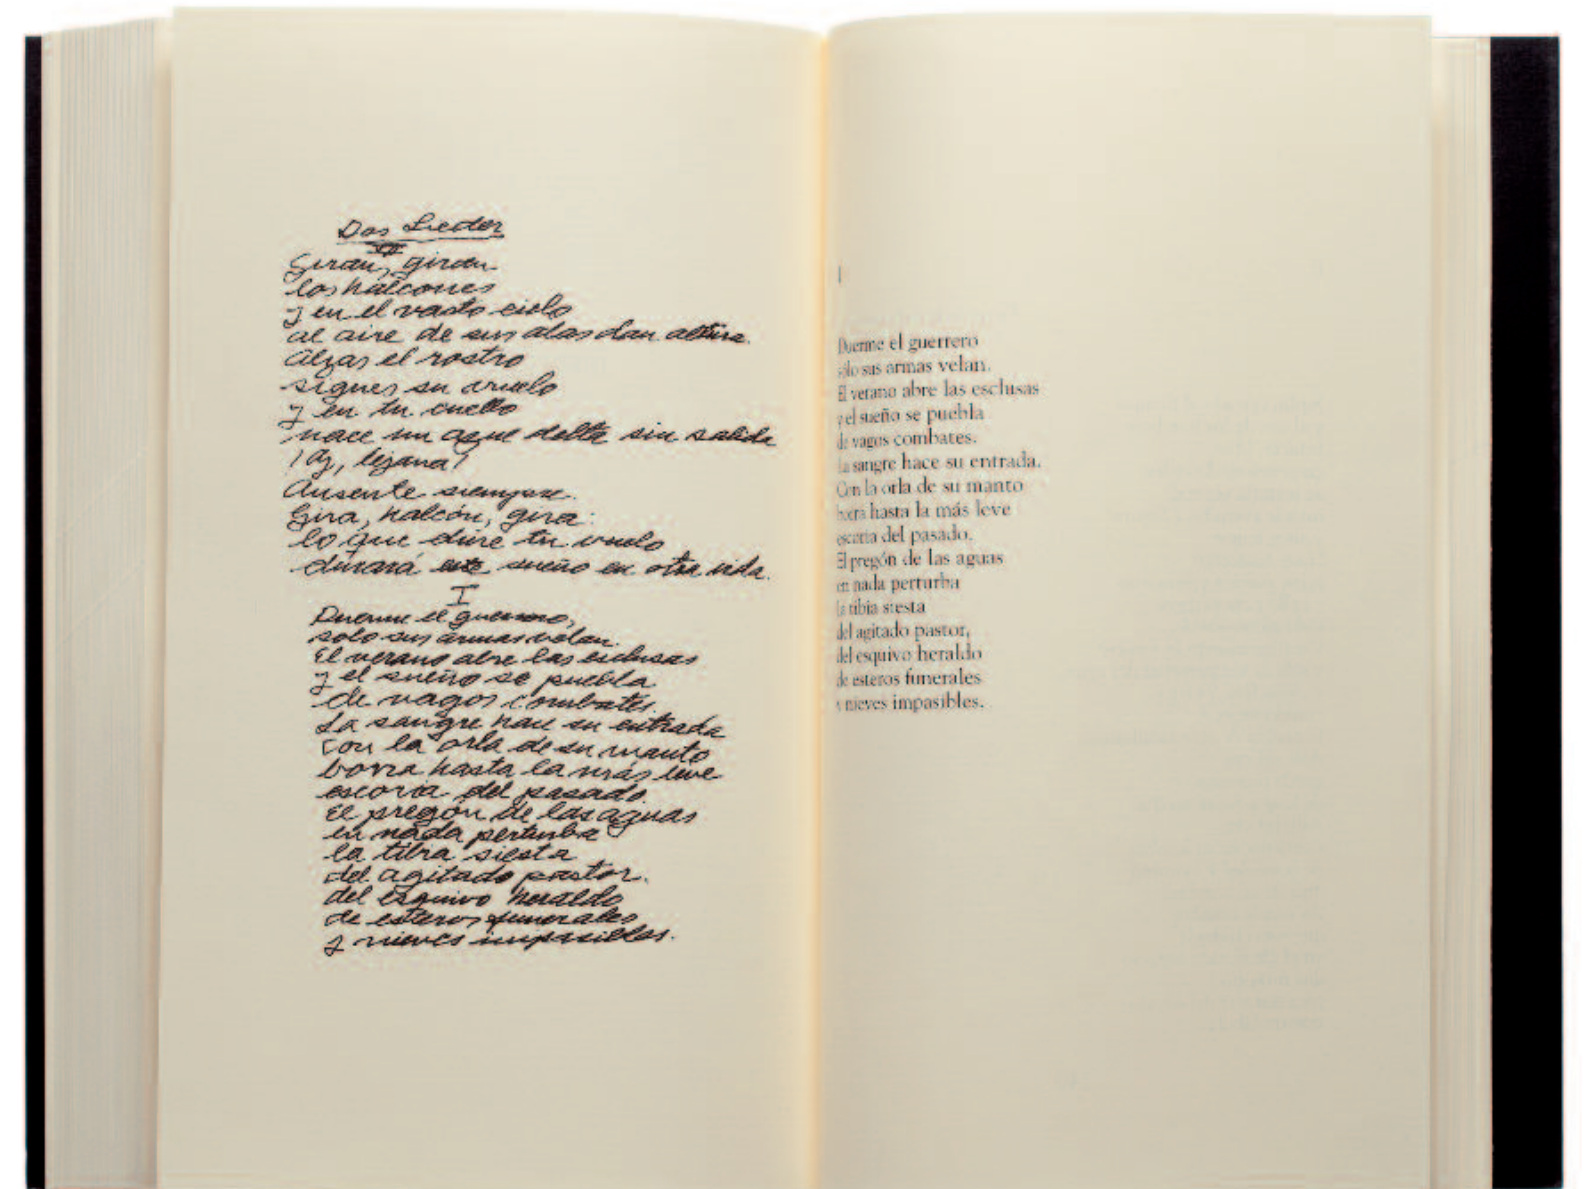 Dos Lieder
II
Giran, giran
los halcones
y en el vasto cielo
al aire de sus alas dan altura.
Alzas el rostro
sigues su vuelo
y en tu cuello
nace un azul delta sin salida
¡Ay, lejana!
Ausente siempre.
Gira, halcón, gira:
lo que dure tu vuelo
durará este sueño en otra vida.
I
Duerme el guerrero,
solo sus armas velan.
El verano abre las esclusas
y el sueño se puebla
de vagos combates.
La sangre hace su entrada
con la orla de su manto
borra hasta la más leve
escoria del pasado.
El pregón de las aguas
en nada perturba
la tibia siesta
del agitado pastor.
del esquivo heraldo
de esteros funerales
y nieves impasibles.
I
Duerme el guerrero
sólo sus armas velan.
El verano abre las esclusas
y el sueño se puebla
de vagos combates.
La sangre hace su entrada.
Con la orla de su manto
borra hasta la más leve
escoria del pasado.
El pregón de las aguas
en nada perturba
la tibia siesta
del agitado pastor,
del esquivo heraldo
de esteros funerales
y nieves impasibles.